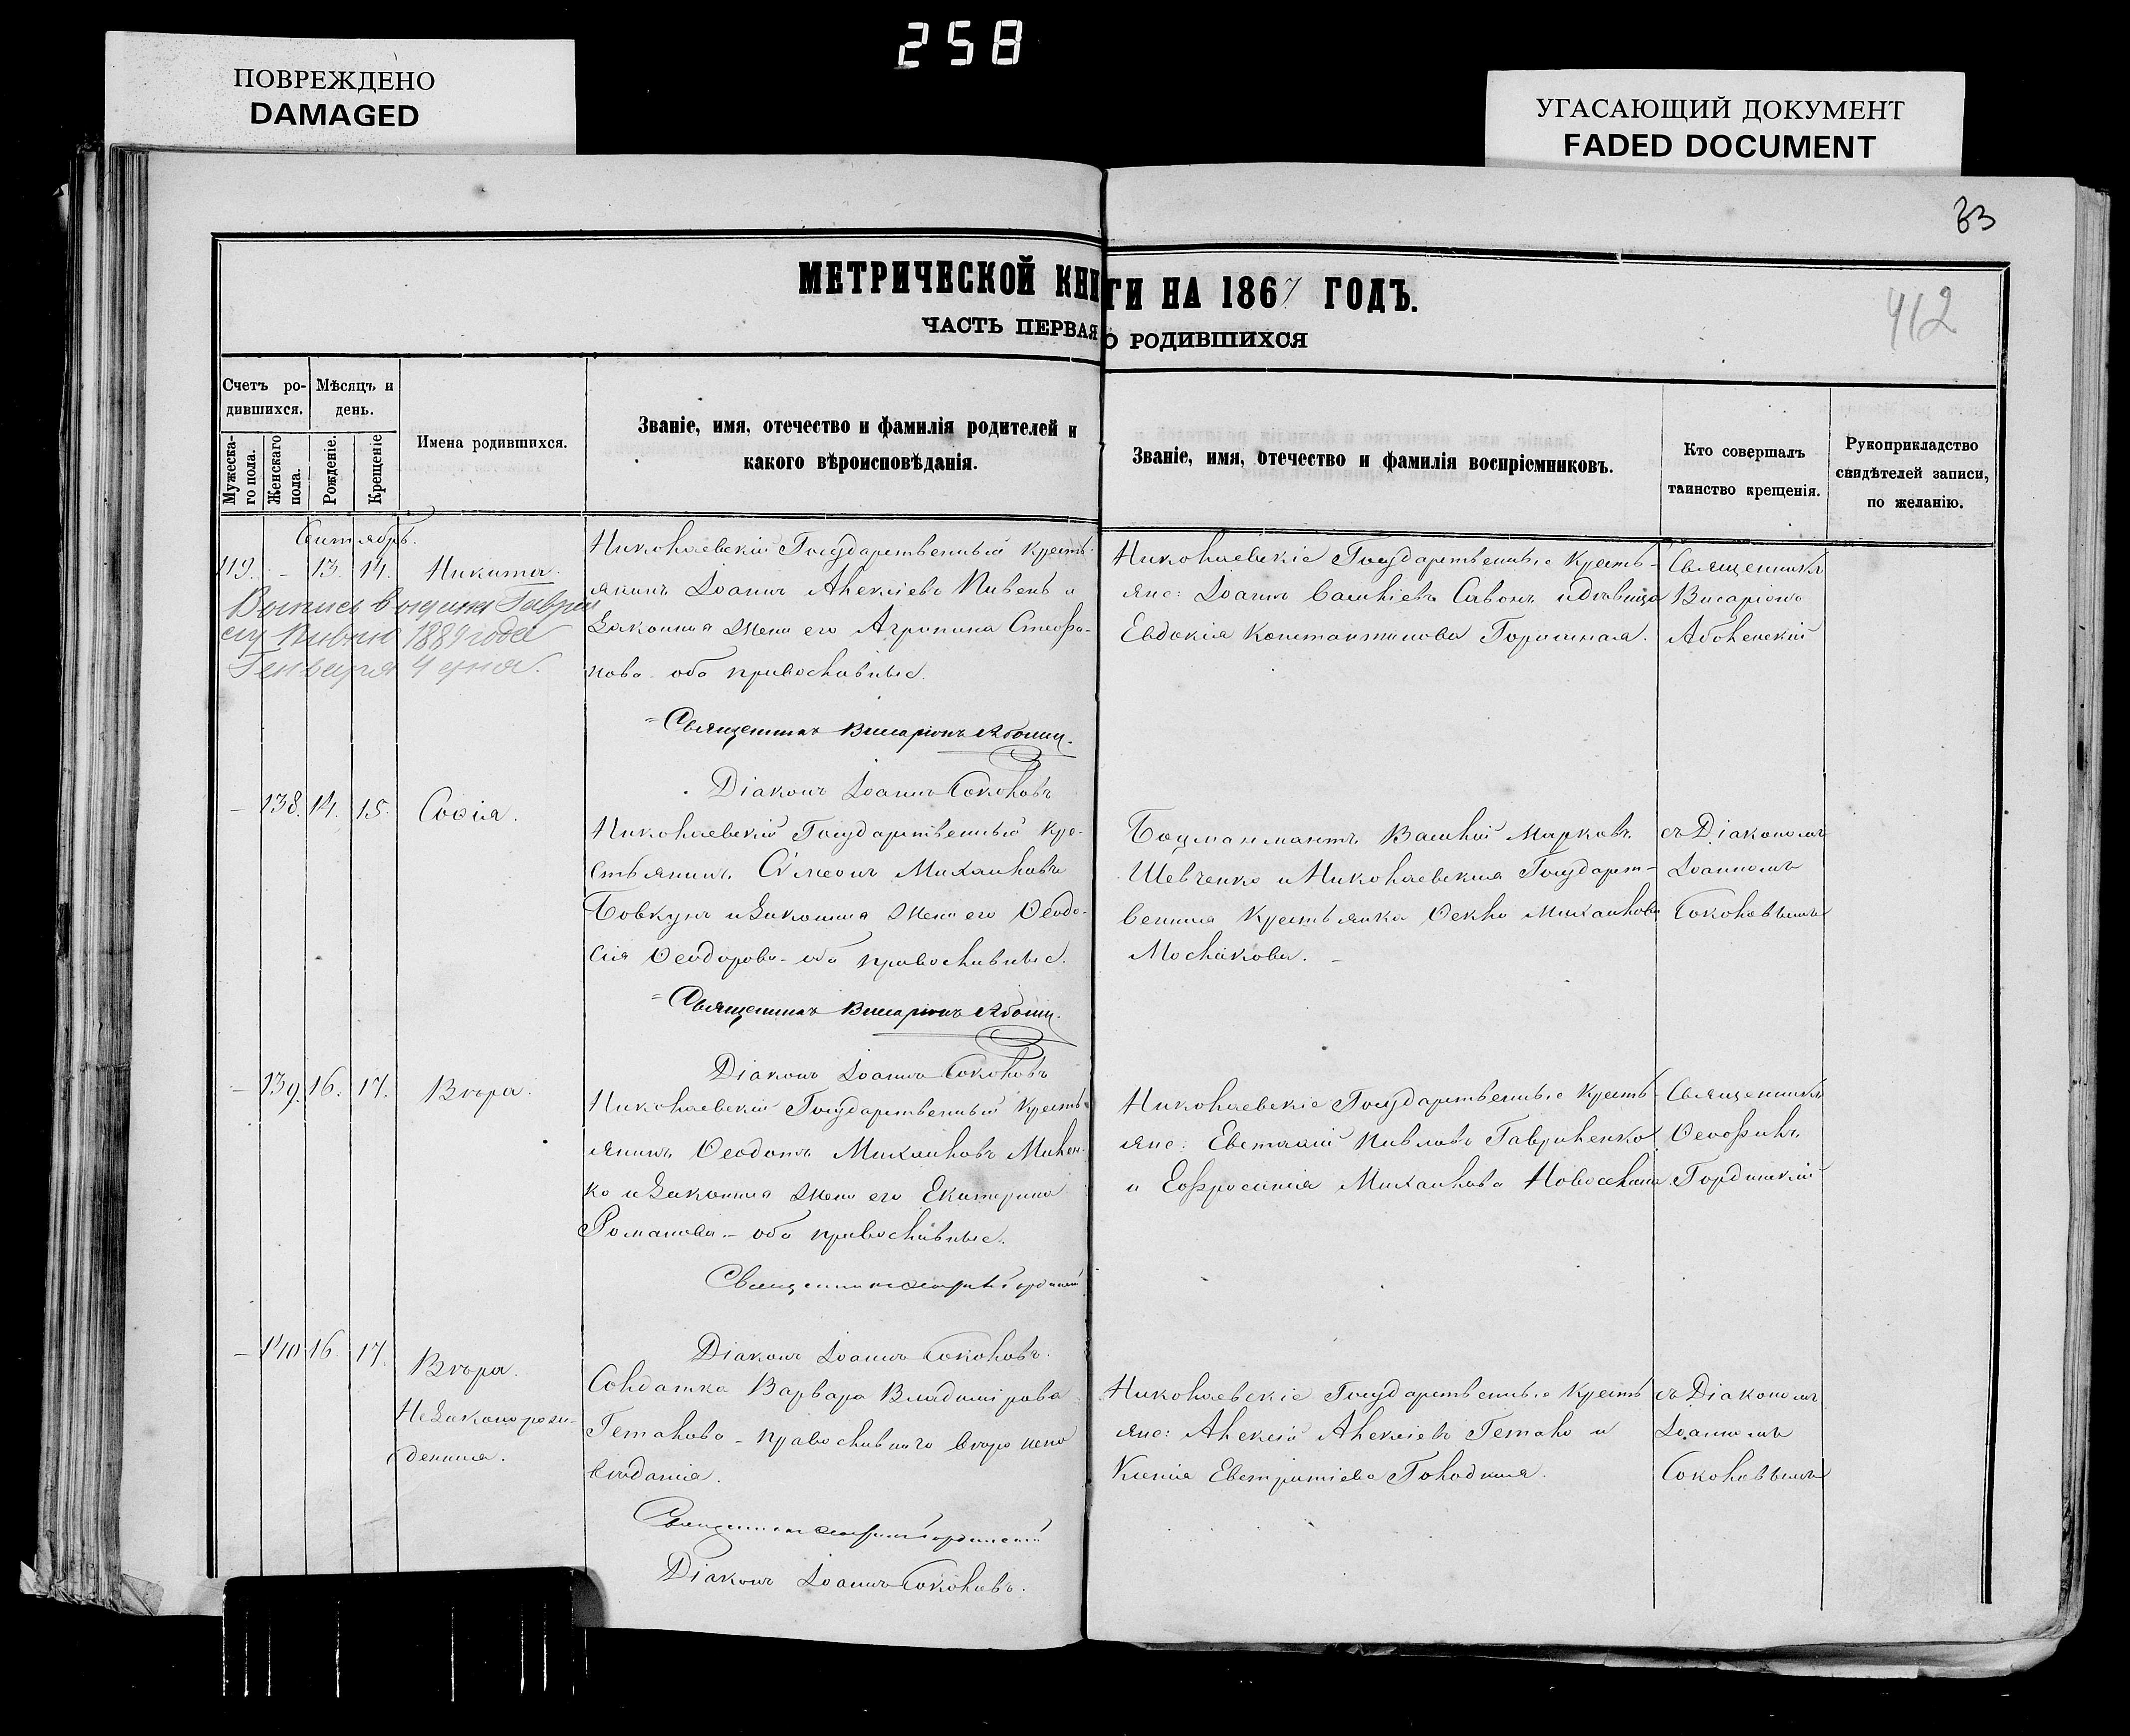 258
ПОВРЕЖДЕНО
DAMAGED
УГАСАЮЩИЙ ДОКУМЕНТ
FADED DOCUMENT
83
МЕТРИЧЕСКОЙ КНИГИ НА 1867 ГОДЪ.
412
ЧАСТЬ ПЕРВАЯ О РОДИВШИХСЯ
Счетъ ро-
дившихся.
Мужеска-
го пола.
Женскаго
пола.
Мѣсяцъ и
день.
Рожденіе.
Крещеніе
Имена родившихся.
Званіе, имя, отечество и фамилія родителей и
какого вѣроисповѣданія.
Званіе, имя, отечество и фамилія воспріемниковъ.
Кто совершалъ
таинство крещенія.
Рукоприкладство
свидѣтелей записи,
по желанію.
Сентябрь.
119. - 13. 14. Никита.
1889 года
Генваря 4 дня.
Николаевскій Государственный кресть-
янинъ Іоаннъ Алексіевъ Пивень и
законная жена его Агрипина Стефа-
нова оба православные.
Священникъ Висаріонъ
Діаконъ Іоаннъ Соколовъ
Николаевскіе Государственные кресть-
яне: Іоаннъ Савонъ и дѣвица
Евдокія Константинова
Священникъ
Висаріонъ
- 138. 14. 15. Софія.
Николаевскій Государственный кре-
стьянинъ Сѵмеонъ Михаиловъ
Бовкунъ и законная жена его Ѳеодо-
сія Ѳеодорова оба православные.
Священникъ Висаріонъ
Діаконъ Іоаннъ Соколовъ
Боцманматъ Марковъ
Шевченко и Николаевская Государст-
венная крестьянка Ѳекла Михаилова
Послакова.
съ Діакономъ
Іоанномъ
Соколовымъ
- 139. 16. 17. Вѣра.
Николаевскій Государственный кресть-
янинъ Ѳеодотъ Михаиловъ Милен-
ко и законная жена его Екатерина
Романова - оба православные.
Священникъ
Діаконъ Іоаннъ Соколовъ.
Николаевскіе Государственные кресть-
яне: Павловъ Гавриленко
и Евфросинія Михаилова
Священникъ
Ѳеофилъ
Гординскій
- 140 16. 17. Вѣра.
Незаконорож-
денная.
Солдатка Варвара Владимірова
Геталова - православнаго вѣроиспо
вѣданія.
Священникъ
Діаконъ Іоаннъ Соколовъ.
Николаевскіе Государственные кресть
яне: Алексій Алексіевъ Гетало и
Ксенія Евстратіева Голодная.
съ Діакономъ
Іоанномъ
Соколовымъ